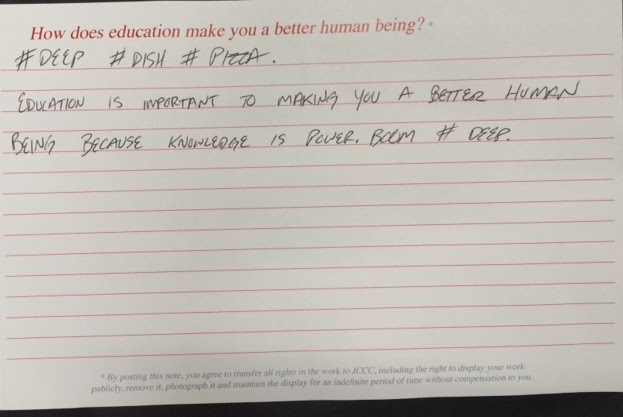 How does education make you a better human being? *
# DEEP # DISH # PIZZA.
EDUCATION IS IMPORTANT TO MAKING YOU A BETTER HUMAN
BEING BECAUSE KNOWLEDGE IS POWER. BOOM # DEEP.
* By posting this note, you agree to transfer all rights in the work to JCCC, including the right to display your work
publicly, remove it, photograph it and maintain the display for an indefinite period of time without compensation to you.